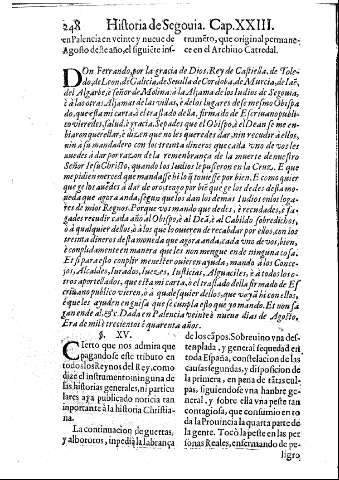 248 Historia de Segouia. Cap. XXIII.
en Palencia en veinte y nueue de
Agosto deste año, el siguiẽte ins-
trumẽto, que original permane-
ce en el Archiuo Catredal.
DOn Ferrando, por la gracia de Dios, Rey de Castiella, de Tole-
do, de Leon, de Galicia, de Seuilla, de Cordoba, de Murcia, de Iaẽ,
del Algarbe, è señor de Molina: à la Aljama de los Iudios de Segouia,
è à las otras Aljamas de las villas, è de los lugares desse mesmo Obispa
do, que esta mi carta, ò el traslado della, firmado de Escriuano publi-
co vieredes, salud, è gracia. Sepades que el Obispo, è el Dean se me en-
biaron querellar, è dizen que no les queredes dar, nin recudir à ellos,
nin à su mandadero con los treinta dineros que cada vno de vos les
auedes à dar por razon de la remembrança de la muerte de nuestro
Señor Iesu Christo, quando los Iudios le posieron en la Cruz. E que
me pidien merced que mandasse hi lo q̃ touiesse por bien. E como quier
que ge los auedes à dar de oro, tengo por biẽ que ge los dedes desta mo-
neda que agora anda, segun que los dan los otros Iudios en los loga-
res de mios Regnos. Porque vos mando que dedes, è recudades, è fa-
gades recudir cada año al Obispo, è al Deã, è al Cabildo sobredichos,
ò à qualquier dellos, ò à los que lo ouieren de recabdar por ellos, con los
treinta dineros desta moneda que agora anda, cada vno de vos, bien,
è complidamente en manera que les non mengue ende ninguna cosa.
Et si para esto conplir menester ouieren ayuda, mando à los Conce-
jos, Alcaldes, Iurados, Iuezes, Iusticias, Alguaciles, è à todos los o-
tros aportellados, que esta mi carta, ò el traslado della firmado de Es
criuano publico vieren, ò à qualesquier dellos, que vayã hi con ellos,
è que les ayuden en guisa que se cumpla esto que yo mando. Et non fa
gan ende al, &c. Dada en Palencia veinte è nueue dias de Agosto,
Era de mil è trecientos è quarenta años.
§. XV.
CIerto que nos admira que
pagandose este tributo en
todos los Reynos del Rey, como
dize el instrumento, ninguna de
las historias generales, ni particu
lares aya publicado noticia tan
inportante à la historia Christia-
na.
La continuacion de guerras,
y alborotos, inpediò la labrança
de los canpos. Sobreuino vna des-
tenplada, y general sequedad en
toda España, constelacion de las
causas segundas, y disposicion de
la primera, en pena de tãtas cul-
pas, siguiendose vna hanbre ge-
neral, y sobre ella vna peste tan
contagiosa, que consumio en to
da la Prouincia la quarta parte de
la gente. Tocò la peste en las per
sonas Reales, enfermando de pe-
ligro